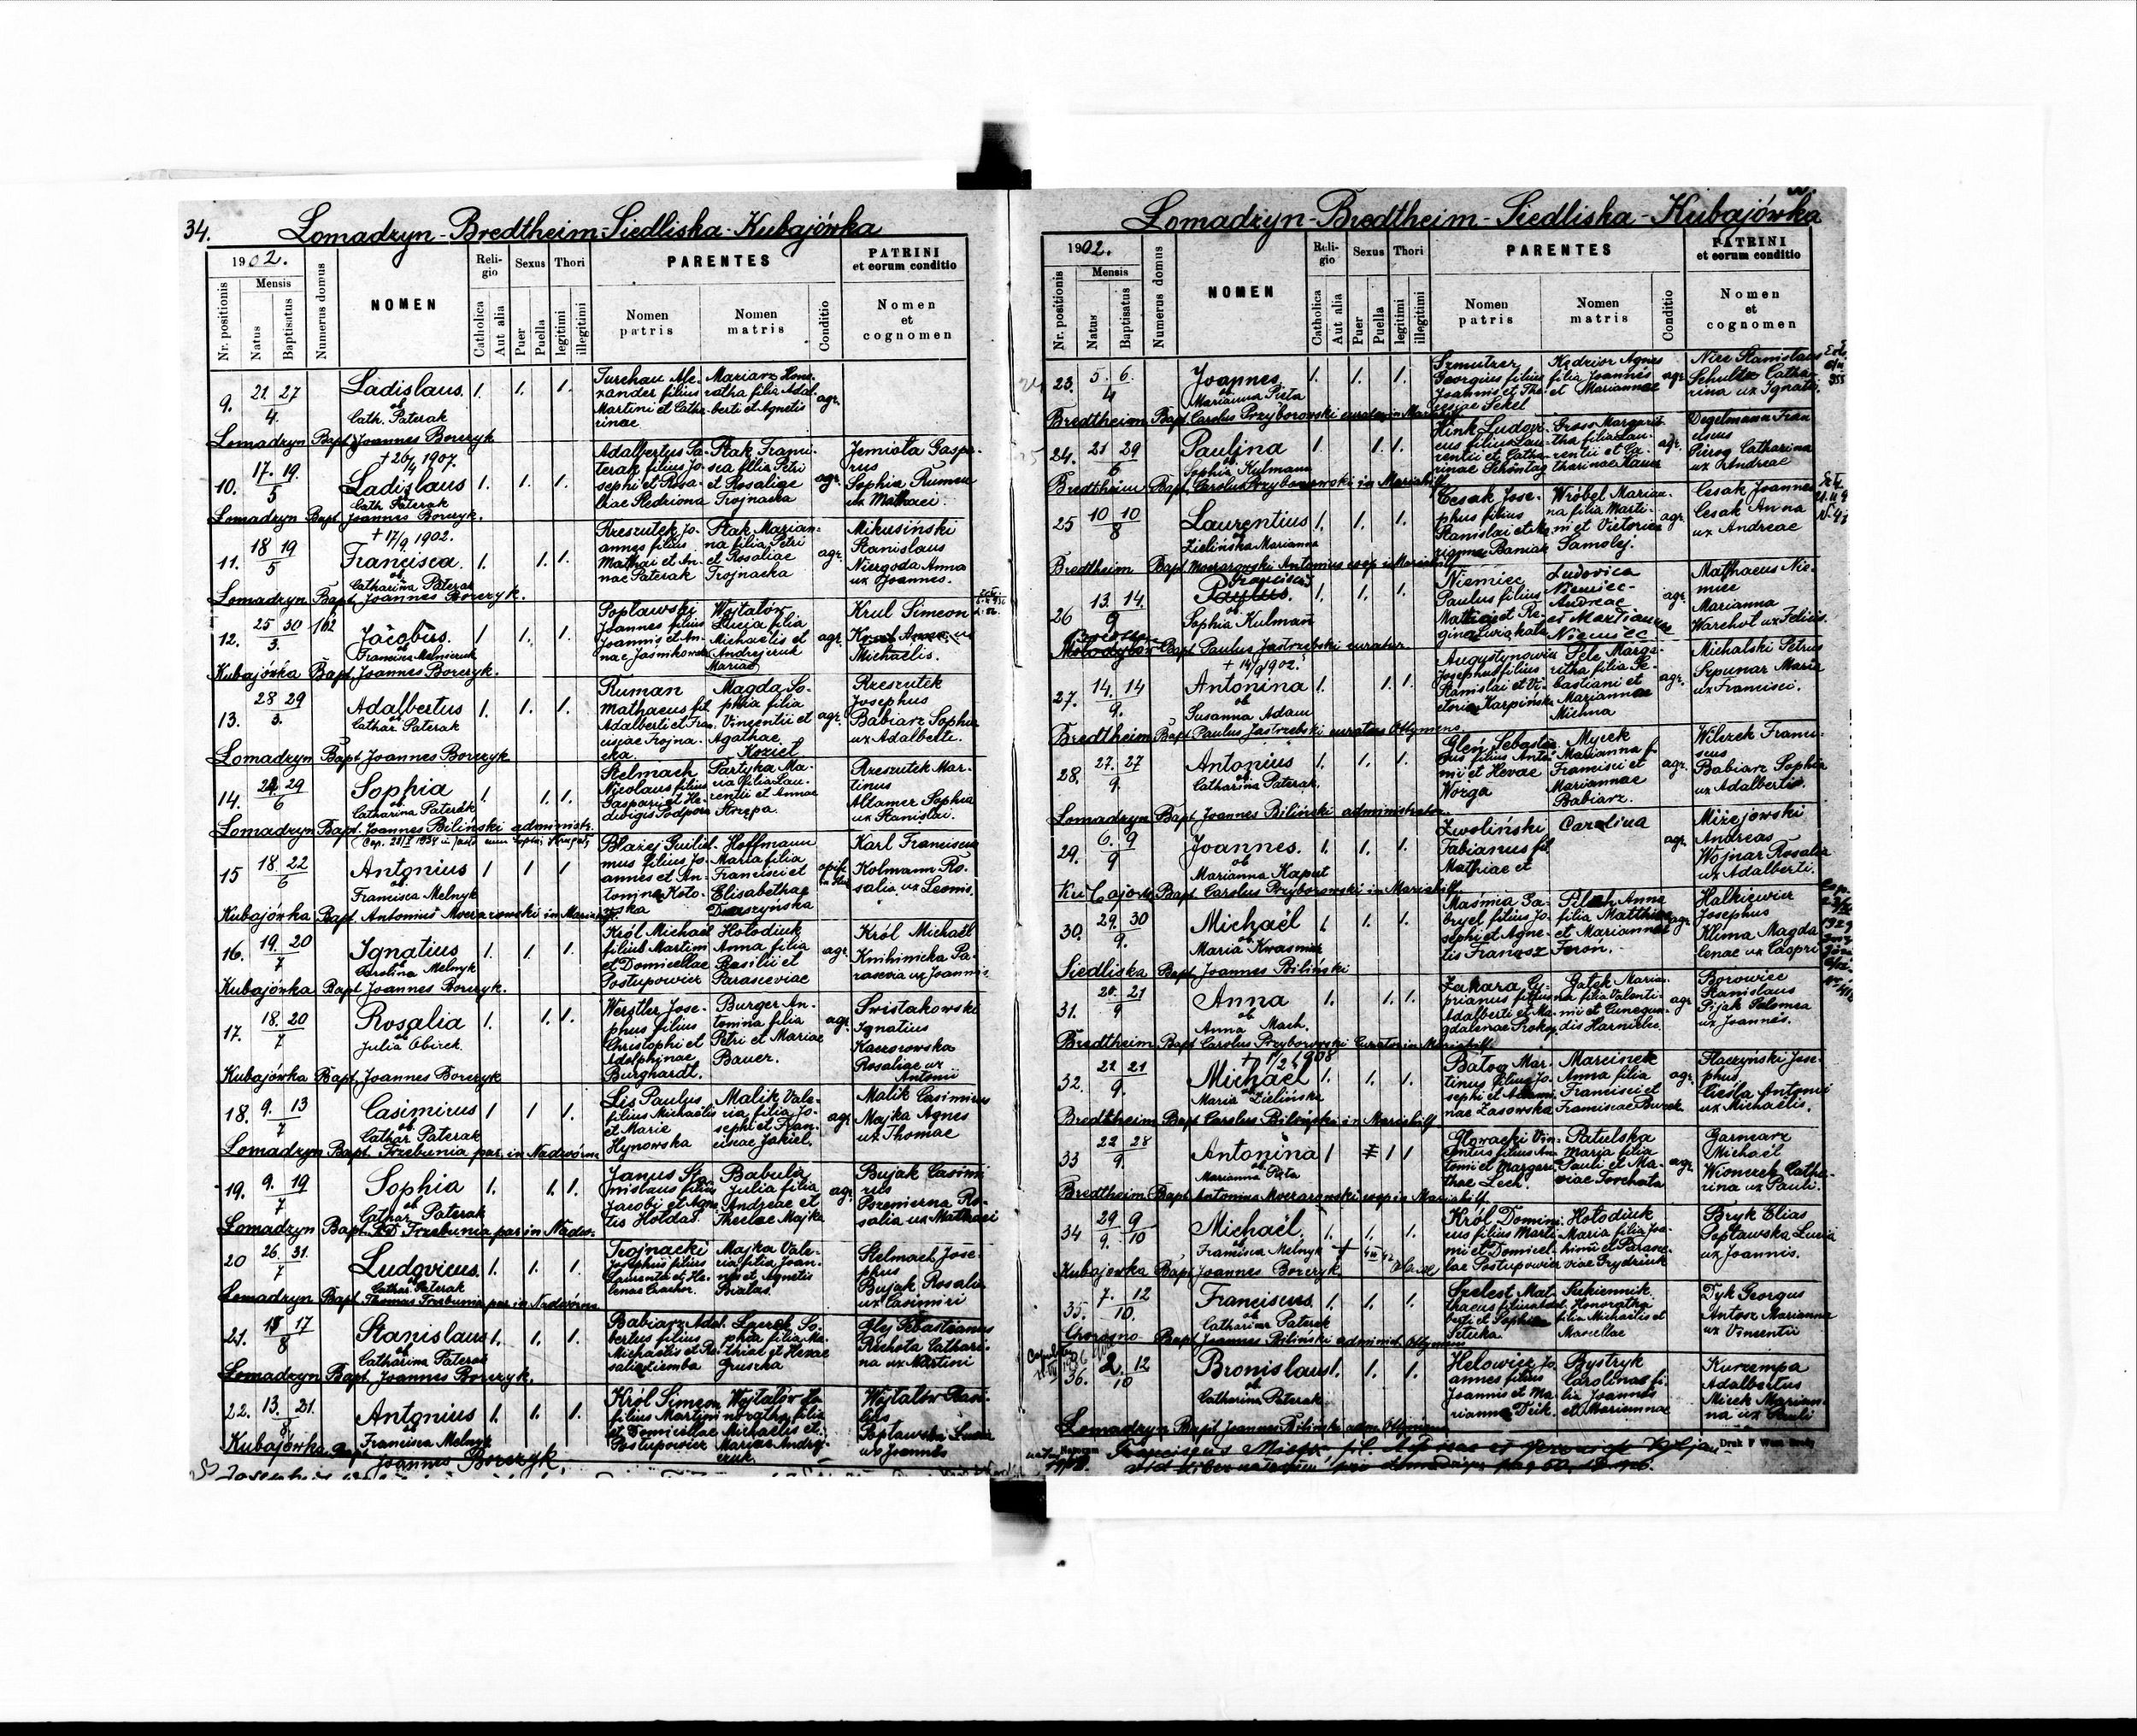 34.
Lomadzyn - Bredtheim - Siedliska - Kubajówka
1902.
Nr. positionis
Mensis
Natus
Baptisatus
Numerus domus
NOMEN
Religio
Catholica
Aut alia
Sexus
Puer
Puella
Thori
legitimi
illegitimi
PARENTES
Nomen patris
Nomen matris
Conditio
PATRINI
et eorum conditio
Nomen
et
cognomen
9. 21. 27
4.
Ladislaus 1. 1. 1.
ob.
Cath. Paterak
Martini et Catha-
rinae
berti et Agnetis
agr.
Lomadzyn Bapt. Joannes Borczyk
+ 26/4 1907.
10. 17. 19.
5
Ladislaus 1. 1. 1.
ob.
Cath. Paterak
Adalbertus Pa-
terak filius Jo-
sephi et Rosa-
liae
Ptak Franci-
sca filia Petri
et Rosaliae
Trojnacka
agr.
Jemioła Gaspa-
rus
Sophia Ruman
ux Mathaei
Lomadzyn Bapt. Joannes Borczyk.
+ 17/9 1902.
11. 18 19
5
Francisca 1. 1. 1.
ob.
Catharina Paterak
Rzeszutek Jo-
annes filius
Mathaei et An-
nae Paterak
Ptak Marian-
na filia Petri
et Rosaliae
Trojnacka
agr.
Mikusiński
Stanislaus
Niezgoda Anna
ux Joannes.
Lomadzyn Bapt. Joannes Borczyk.
12. 25 30 162
3.
Jacobus. 1 1. 1.
ob.
Francisca Melniczuk
Popławski
Joannes filius
Joannis et An-
nae Jaśnikowska
Wojtalów
Lucia filia
Michaelis et
Andrejczuk
Mariae
agr.
Krul Simeon
Michaelis.
Kubajówka Bapt. Joannes Borczyk.
13. 28 29
3.
Adalbertus 1. 1. 1.
ob.
Cathar. Paterak
Ruman
Mathaeus fil.
Adalberti et Fran-
ciscae Trojna-
cka.
Magda So-
phia filia
Vincentii et
Agathae
Kozieł
agr.
Rzeszutek
Josephus
Babiarz Sophia
ux Adalberti.
Lomadzyn Bapt. Joannes Borczyk
14. 24 29
6
Sophia 1. 1. 1.
ob.
Catharina Paterak
Stelmach
Nicolaus filius
Gaspari et He-
dwigis Podpora
Partyka Ma-
ria filia Lau-
rentii et Annae
Strzępa.
Rzeszutek Mar-
tinus
Altamer Sophia
ux Stanislai.
Lomadzyn Bapt. Joannes Biliński administr.
15 18. 22
6
Antonius 1 1 1
ob.
Francisca Melnyk
Błażej Guiliel-
mus filius Jo-
annes et An-
Hoffmann
Maria filia
Francisci et
Elisabethae
Karl Franciscus
Kolmann Ro-
salia ux Leonis.
Kubajówka Bapt. Antonius Moczarowski in Mariahilf.
16. 19. 20
7
Ignatius 1. 1 1.
ob.
Carolina Melnyk
Król Michael
filius Martini
et Domicellae
Postupowicz
Hołodiuk
Anna filia
Basilii et
Parasceviae
agr.
Król Michaël
Knihinicka Pa-
rascevia ux Joannis
Kubajówka Bapt. Joannes Borczyk.
17. 18. 20
7
Rosalia 1. 1. 1.
ob.
Julia Obirek.
Werstler Jose-
phus filius
Christophi et
Adolphinae
Burghardt.
Burger An-
tonina filia
Petri et Mariae
Bauer.
agr.
Swistakowski
Ignatius
Kaczorowska
Rosaliae ux
Antonii
Kubajówka Bapt. Joannes Borczyk
18. 9. 13
7
Casimirus 1 1 1.
ob.
Cathar. Paterak
Lis Paulus
filius Michaëlis
et Marie
Hynowska
Malik Vale-
ria filia Jo-
sephi et Fran-
ciscae Jakiel.
agr.
Malik Casimirus
Majka Agnes
ux Thomae
Lomadzyn Bapt. Trzebunia par. in Nadwórna
19. 9. 19
7
Sophia 1. 1. 1.
ob.
Cathar. Paterak
Janus Sta-
nislaus filius
Jacobi et Agne-
tis Hołda.
Babula
Julia filia
Andreae et
Theclae Majka
agr.
Bujak Casimi
rus
Pszenierna Ro-
salia ux Mathaei
20 26. 31.
7
Ludovicus. 1. 1. 1.
ob.
Cathar. Paterak
Trojnacki
Josephus filius
Laurenti et He-
lenae
Majka Vale-
ria filia Joan-
nis et Agnetis
Białas.
Stelmach Jose-
phus
Bujak Rosalia
ux Casimiri
Lomadzyn Bapt. Thomas Trzebunia par in Nadwórna
21. 15 17
8
Stanislaus 1. 1. 1.
ob.
Catharina Paterak
Babiarz Adal-
bertus filius
Michaelis et Ro-
salia Ziemba
phia filia Ma-
thiae et Hevae
Gruszka
Glej Sebastianus
Ruchota Cathari-
na ux Martini
Lomadzyn Bapt. Joannes Borczyk.
22. 13. 21.
8
Antonius 1. 1. 1.
ob.
Francisca Melnyk
Król Simeon
filius Martini
et Domicellae
Postupowicz
Wojtalów Ho-
noratha filia
Michaelis et
Mariae Andrej-
czuk.
Wojtalów Basi-
lius
Popławska Lucia
ux Joannes
Kubajówka Bapt. Joannes Borczyk.
Lomadzyn - Bredtheim - Siedliska - Kubajówka
1902.
Nr. positionis
Mensis
Natus
Baptisatus
Numerus domus
NOMEN
Religio
Catholica
Aut alia
Sexus
Puer
Puella
Thori
legitimi
illegitimi
PARENTES
Nomen patris
Nomen matris
Conditio
PATRINI
et eorum conditio
Nomen
et
cognomen
23. 5. 6.
4
Joannes 1. 1. 1.
ob.
Marianna Pięta
Szmutzer
Georgius filius
Joannis et The-
resiae Fekel
Kędzior Agnes
filia Joannes
et Mariannae
agr.
Niec Stanislaus
Schultz Catha-
rina ux Ignatii.
Bredtheim Bapt. Carolus Przyborowski curatus in Mariahilf
24. 21 29
6
Paulina 1. 1. 1.
ob.
Sophia Kulmann
Hink Ludovi-
cus filius Lau-
rentii et Catha-
rinae Schöntag
Gross Margari-
tha filia Lau-
rentii et Ca-
tharinae
agr.
Degelmann Fran
ciscus
Pierog Catharina
ux Andreae
Bredtheim Bapt. Carolus Przyborowski in Mariahilf
25 10 10
8
Laurentius 1. 1. 1.
ob.
Zielińska Marianna
Cesak Jose-
phus filius
Stanislai et Ma-
rianna Baniak
Wróbel Marian-
na filia Marti-
ni et Victoriae
Samolej.
agr.
Cesak Joannes
Cesak Anna
ux Andreae
Bredtheim Bapt. Moczarowski Antonius coop in Mariahilf
26 13. 14.
9
Franciscus
Paulus. 1. 1. 1.
ob.
Sophia Kulman
Niemiec
Paulus filius
Mathiae et Re-
gina
Ludovica
Niemiec
Andreae
et Mariannae
Niemiec
agr.
Mathaeus Nie-
miec
Marianna
Warchoł ux Felicis.
Bapt. Paulus Jastrzebski curatus.
+ 14/9 1902.
27. 14. 14
9.
Antonina 1. 1. 1.
ob.
Susanna Adam
Augustynowicz
Josephus filius
Stanislai et Vi-
ctoria Karpińska
Pele Marga-
ritha filia Se-
bastiani et
Mariannae
Michna
agr.
Michalski Petrus
Szpunar Maria
ux Francisci.
Bredtheim Bapt. Paulus Jastrzebski curatus Ottynensis
28. 27. 27
9.
Antonius 1. 1. 1.
ob.
Catharina Paterak.
Gleń Sebastia-
nus filius Anto-
nii et Hevae
Worga
Mycek
Marianna f.
Francisci et
Mariannae
Babiarz.
agr.
Wilczek Franci-
scus
Babiarz Sophia
ux Adalberti.
Lomadzyn Bapt. Joannes Biliński administrator.
29. 6. 9
9
Joannes. 1. 1. 1.
ob.
Marianna Kaput
Zwoliński
Fabianus fil.
Mathiae et
Carolina
agr.
Miżejowski
Andreas
Wojnar Rosalia
ux Adalberti.
Bapt. Carolus Przyborowski in Mariahilf.
30. 29. 30
9.
Michaël 1. 1. 1.
ob.
Maria
Maśnica Ga-
bryel filius Jo-
sephi et Agne-
tis Francisz
Anna
filia Matthiae
et Mariannae
Foroń.
agr.
Halkiewicz
Josephus
Klima Magda
lenae ux Caspri
Siedliska Bapt. Joannes Biliński
31. 20. 21
9
Anna 1. 1. 1.
ob.
Anna Mach.
Zahara Cy-
prianus filius
Adalberti et Ma-
gdalenae
Gatek Marian-
na filia Valenti-
nii et Cunegun-
dis
agr
Borowiec
Stanislaus
Pijak Salomea
ux Joannes.
Bredtheim Bapt. Carolus Przyborowski Curatus in Mariahilf
+ 11/2 1908
32. 21 21
9.
Michaël 1. 1. 1.
ob.
Maria Zielińska
Batog Mar-
tinus filius Jo-
sephi et
nae Zasowska
Marcinek
Anna filia
Francisci et
Franciscae
agr.
Jose-
phus
Cieśla Antonii
ux Michaëlis.
Bredtheim Bapt. Carolus Biliński in Mariahilf
33 22 28
9.
Antonina 1 1 1
ob.
Marianna Pięta
Głowacki Vin-
centus filius An-
tonii et Margari-
thae Lech.
Patulska
Maria filia
Pauli et Ma-
riae
agr.
Garncarz
Michaël
Wioncek Catha-
rina ux Pauli.
Bredtheim Bapt. Antonius Moczarowski coop in Mariahilf.
34 29 9
9. 10
Michaël. 1. 1. 1.
ob.
Francisca Melnyk
Król Domini-
cus filius Marti-
ni et Domicel-
lae Postupowicz
Hołodiuk
Maria filia Joa-
chimi et Parasce-
viae Frydziuk
Bryk Elias
Popławska Lucia
ux Joannis.
Kubajówka Bapt. Joannes Borczyk
35. 7. 12
10.
Franciscus 1. 1. 1.
ob.
Catharina Paterak
Szelest Mat-
thaeus filius Adal-
berti et Sophiae
Sukiennik
Honoratha
filia Michaelis et
Marcellae
Dyk Georgus
Antosz Marianna
ux Vincentii
Bapt. Joannes Biliński administ. Ottyniae
36. 2. 12
10
Bronislaus 1. 1. 1.
ob.
Catharina Paterak
Helowicz Jo-
annes filius
Joannis et Ma-
rianna
Bystryk
Carolina fi-
lia Joannes
et Mariannae
Kurzempa
Adalbertus
Micek Marian-
na ux Pauli
Lomadzyn Bapt. Joannes Biliński adm. Ottyniae